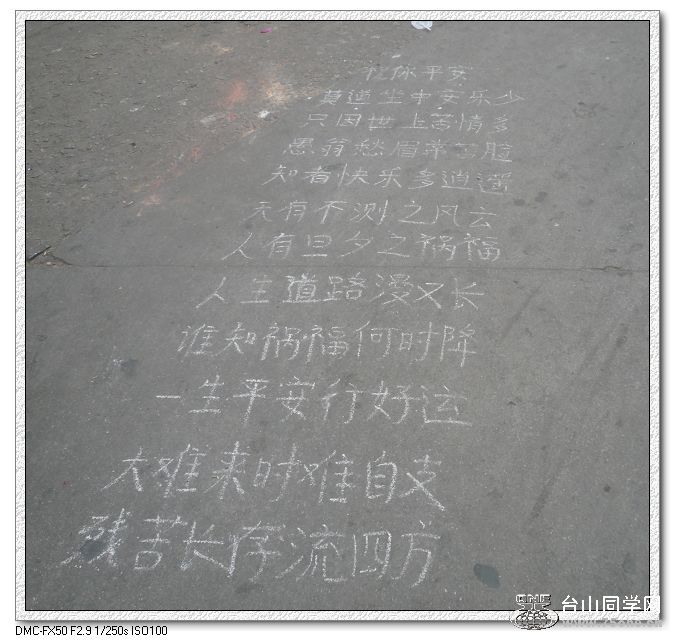 祝你平安
莫道生中安乐少
只因世上苦情多
愚翁愁眉常苦脸
知者快乐多逍遥
天有不测之风云
人有旦夕之祸福
人生道路漫又长
谁知祸福何时降
一生平安行好运
大难来时难自支
残苦长存流四方
ONE 台山同学网
DMC-FX50 F2.9 1/250s ISO100